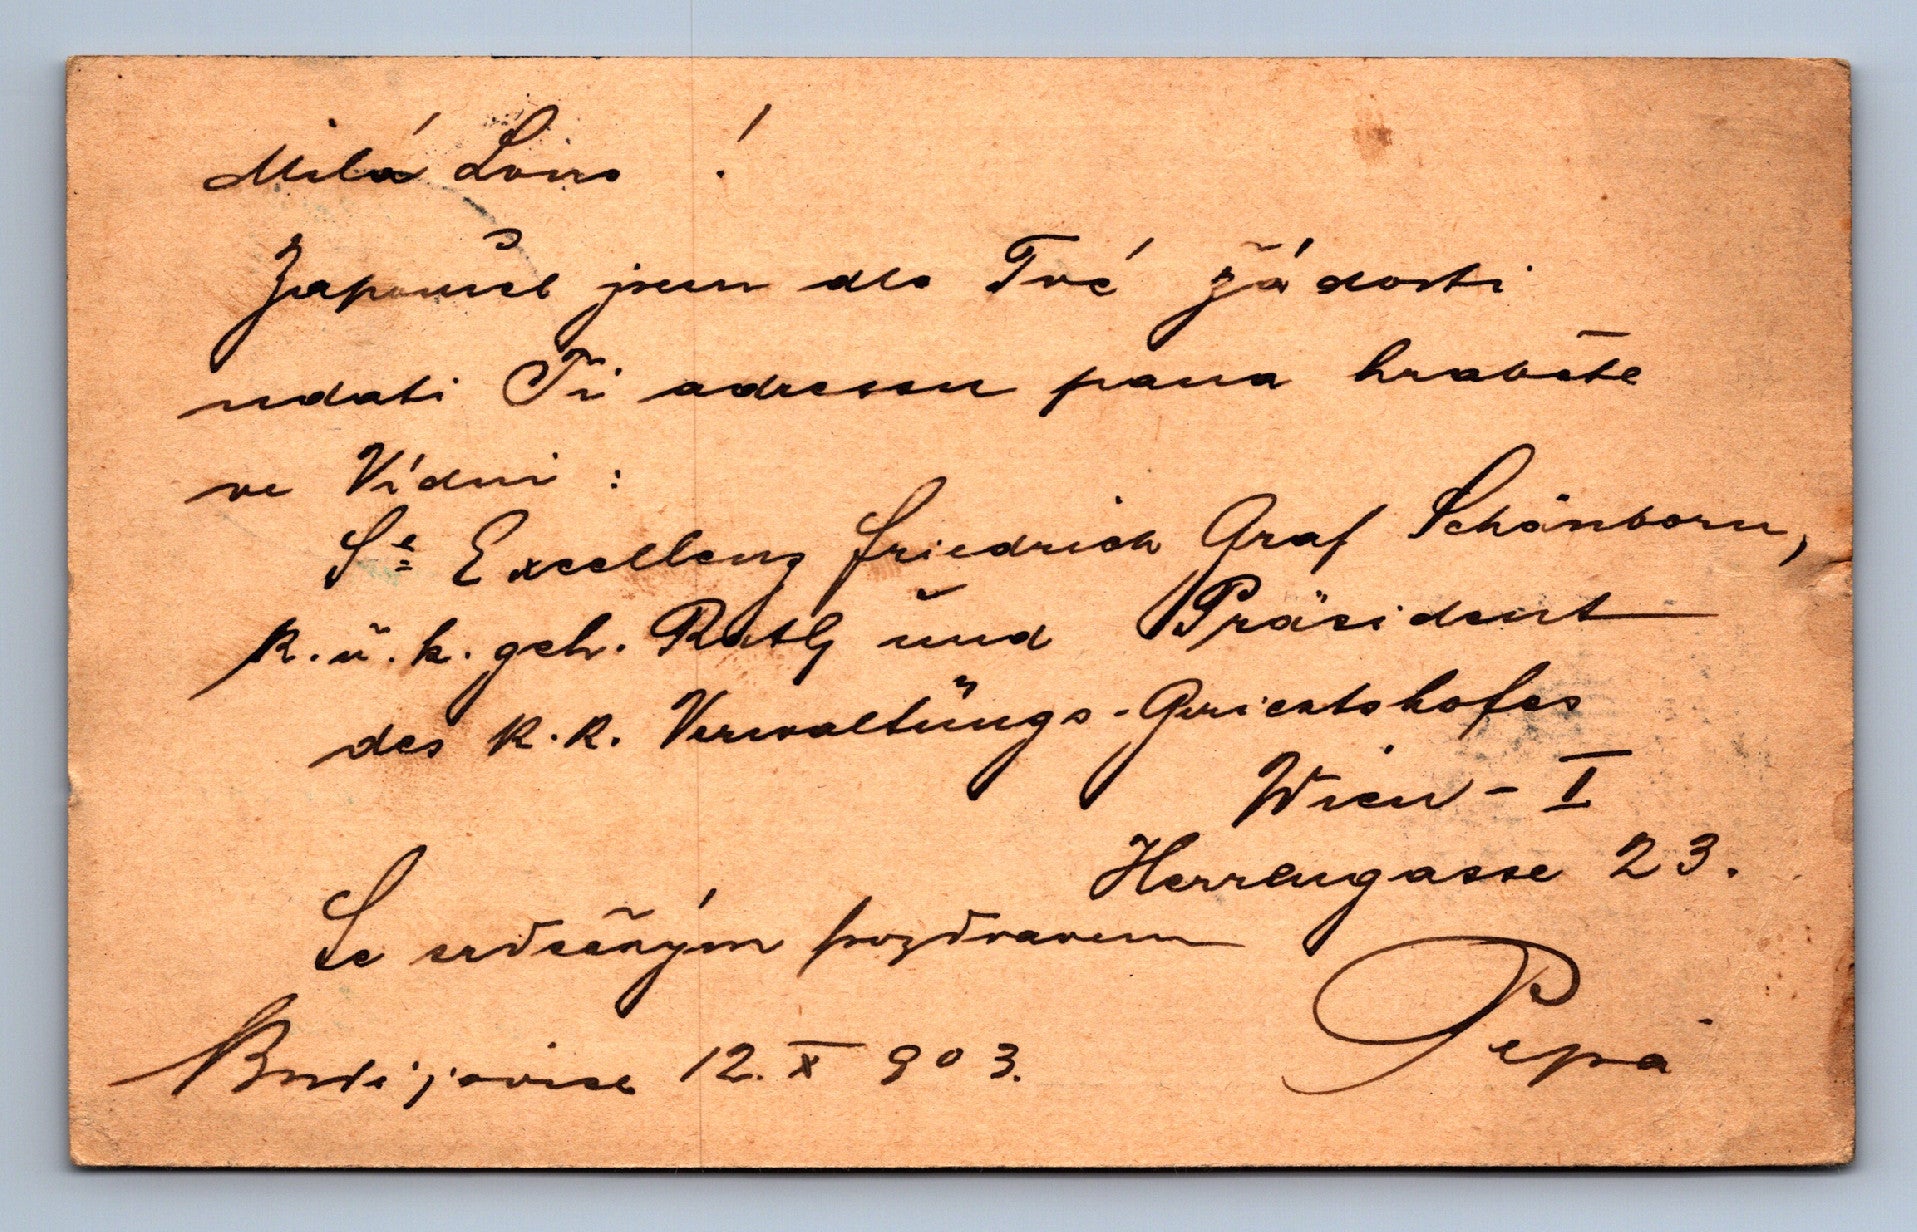 Milá Loiso !
Zapomněl jsem dle Tvé žádosti
udati Ti adressu pana hraběte
ve Vídni :
Se Excellenz Friedrich Graf Schönborn,
k. u. k. geh. Rath und Präsident
des k. k. Verwaltungs-Gerichtshofes
Wien - I
Herrengasse 23.
Se srdečným pozdravem
Pepa
Budějovice 12. X 903.